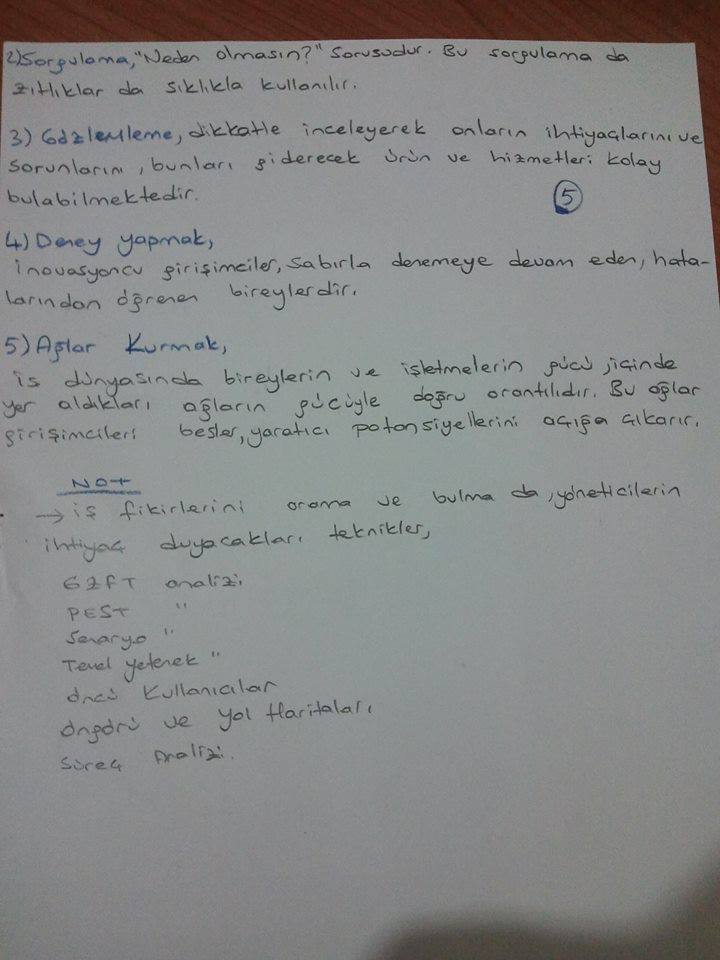 2) Sorgulama, "Neden olmasın?" sorusudur. Bu sorgulama da
zıtlıklar da sıklıkla kullanılır.
3) Gözlemleme, dikkatle inceleyerek onların ihtiyaçlarını ve
sorunlarını, bunları giderecek ürün ve hizmetleri kolay
bulabilmektedir.
5
4) Deney yapmak,
inovasyoncu girişimciler, sabırla denemeye devam eden, hata-
larından öğrenen bireylerdir.
5) Ağlar Kurmak,
iş dünyasında bireylerin ve işletmelerin gücü, içinde
yer aldıkları ağların gücüyle doğru orantılıdır. Bu ağlar
girişimcileri besler, yaratıcı potansiyellerini açığa çıkarır.
NOT
→ iş fikirlerini arama ve bulma da, yöneticilerin
ihtiyaç duyacakları teknikler,
GZFT analizi
PEST "
Senaryo "
Temel yetenek "
Öncü Kullanıcılar
Öngörü ve Yol Haritaları
Süreç Analizi.